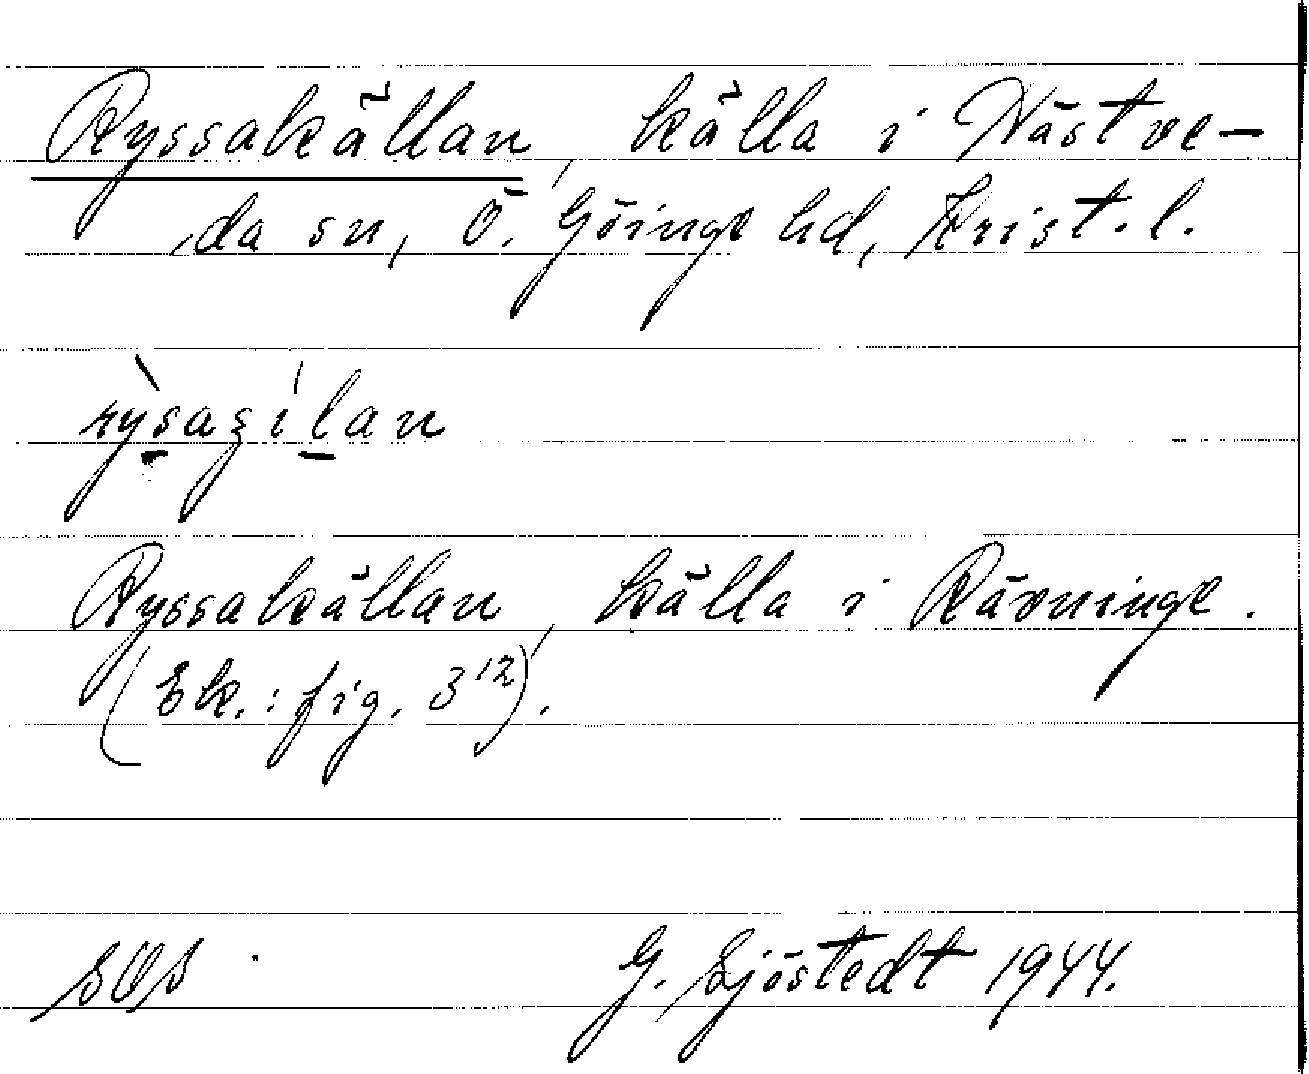 Ryssakällan, källa i Nästve-
da sn, Ö. Göinge hd, Krist. l.
rỳsaʒílan
Ryssakällan, källa i Rävninge.
(Ek.: fig. 3¹²).
sOs
G. Sjöstedt 1944.